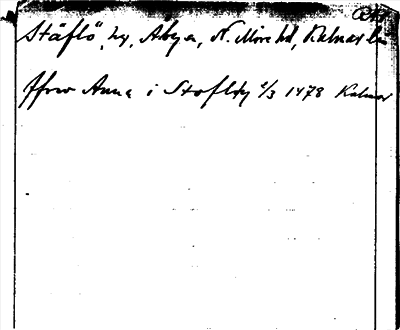 Stäflö, hg, Åby sn, N. Möre hd, Kalmar län
ffrw Anna i Stoffløy 2/3 1478 Kalmar